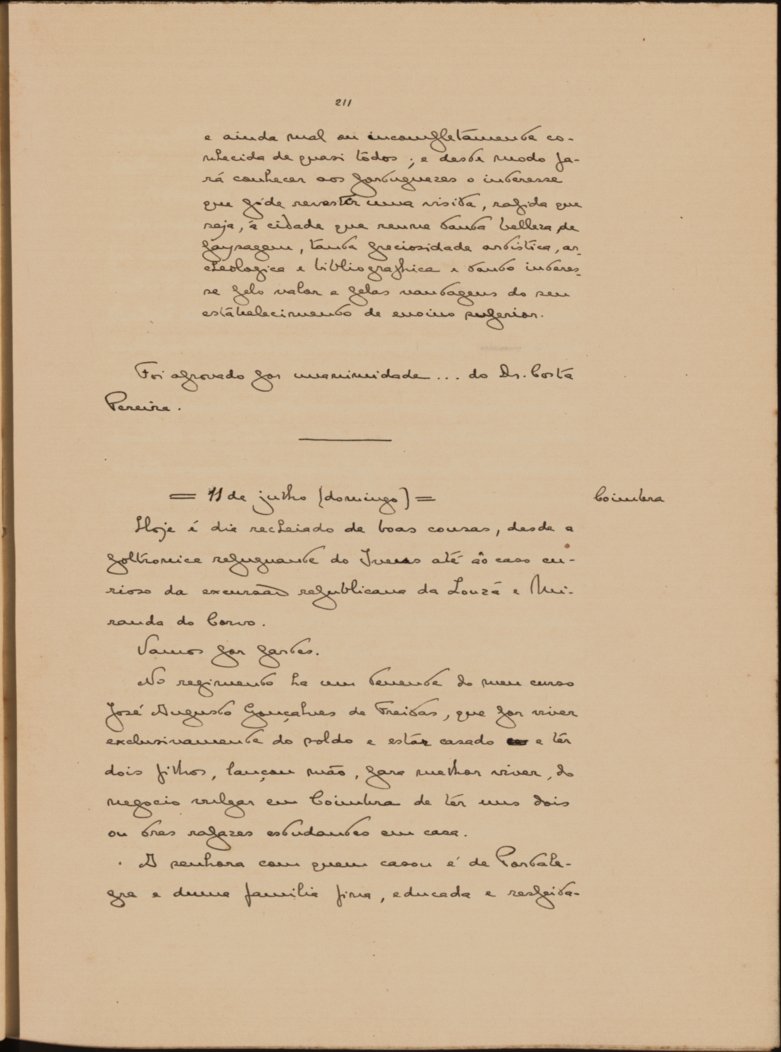 211
e ainda mal ou incompletamente co-
nhecida de quasi tôdos; e deste modo fa-
rá conhecer aos portuguezes o interesse
que póde revestir uma visita, rapida que
seja, á cidade que reune tanta belleza de
paysagem, tanta preciosidade artística, ar-
cheologica e bibliographica e tanto interes-
se pelo valor e pelas vantagens do seu
estabelecimento de ensino superior.
Foi aprovado por unanimidade... do Dr. Costa
Pereira.
= 11 de julho (domingo) =
Coimbra
Hoje é dia recheiado de boas cousas, desde a
poltronice repugnante do Ivens até ao caso cu-
rioso da excursão republicana da Louzã e Mi-
randa do Corvo.
Vamos por partes.
No regimento ha um tenente do meu curso
José Augusto Gonçalves de Freitas, que por viver
exclusivamente do soldo e estar casado e têr
dois filhos, lançou mão, para melhor viver, do
negocio vulgar em Coimbra de têr uns dois
ou tres rapazes estudantes em casa.
A senhora com quem casou é de Portale-
gre e duma familia fina, educada e respeita-